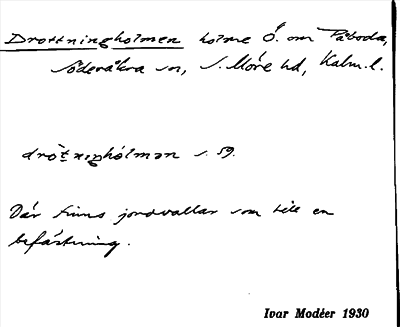 Drottningholmen holme Ö. om Påboda,
Söderåkra sn, S. Möre hd, Kalm. l.
dròt̀nıŋhólmən s. 59.
Där finns jordvallar som till en
befästning.
Ivar Modéer 1930